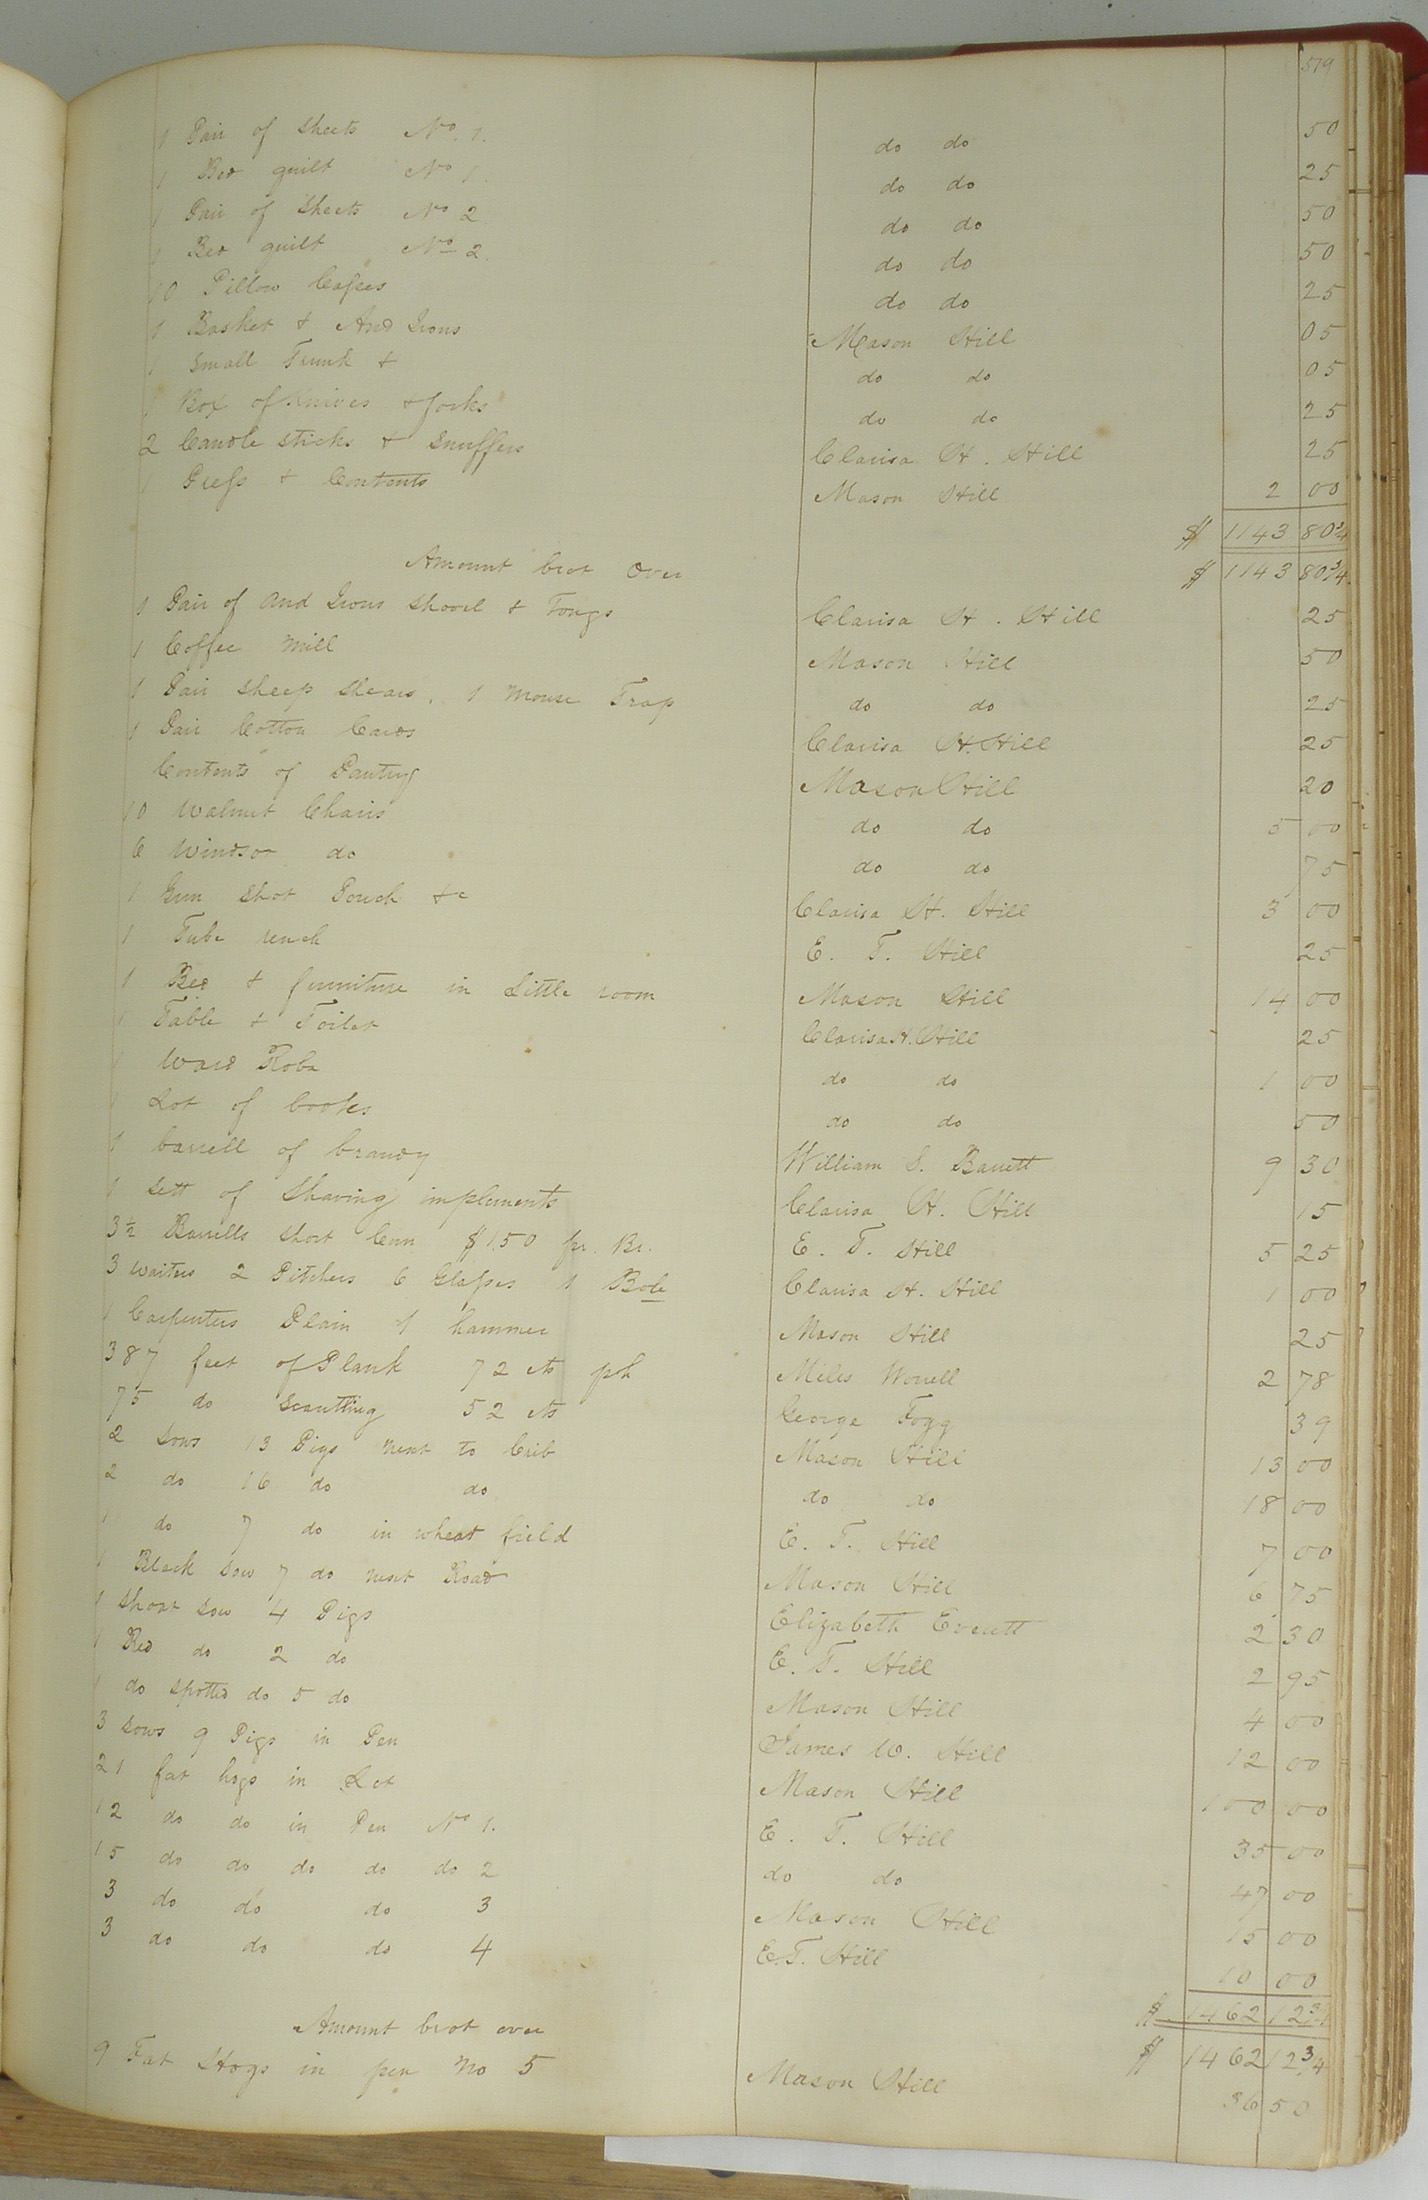 579
1 Pair of Sheets No. 1. do do 50
1 Bed quilt No 1. do do 25
1 Pair of Sheets No 2 do do 50
1 Bed quilt No 2. do do 50
10 Pillow Cases do do 25
1 Basket + And Irons Mason Hill 05
1 Small Trunk + do do 05
1 Box of Knives + forks do do 25
2 Candle sticks + Snuffers Clarisa H. Hill 25
1 Press + Contents Mason Hill 2 00
$ 1143 80 3/4
Amount brot over $ 1143 80 3/4
1 Pair of And Irons Shovel + Tongs Clarisa H. Hill 25
1 Coffee Mill Mason Hill 50
1 Pair Sheep Shears, 1 Mouse Trap do do 25
1 Pair Cotton Cards Clarisa H. Hill 25
Contents of Pantry Mason Hill 20
10 Walnut Chairs do do 5 00
6 Windsor do do do 75
1 Gun Shot Pouch &c Clarisa H. Hill 3 00
1 Tube rench E. T. Hill 25
1 Bed + furniture in Little room Mason Hill 14 00
1 Table + Toilet Clarisa H. Hill 25
1 Ward Robe do do 1 00
1 Lot of books do do 50
1 barrell of brandy William S. Barrett 9 30
1 Sett of Shaving implements Clarisa H. Hill 15
3 1/2 Barrells Short Corn $1.50 pr. Br. E. T. Hill 5 25
3 waiters 2 Pitchers 6 Glasses 1 Bole Clarisa H. Hill 1 00
1 Carpenters Plain 1 hammer Mason Hill 25
387 feet of Plank 72 cts ph Miles Worrell 2 78
75 do Scantling 52 cts George Fogg 39
2 Sows 13 Pigs next to Crib Mason Hill 13 00
2 do 16 do do do do 18 00
1 do 7 do in wheat field E. T. Hill 7 00
1 Black Sow 7 do next Road Mason Hill 6 75
1 Short Sow 4 Pigs Elizabeth Everett 2 30
1 Red do 2 do E. T. Hill 2 95
1 do spotted do 5 do Mason Hill 4 00
3 Sows 9 Pigs in Pen James W. Hill 12 00
21 fat hogs in Lot Mason Hill 100 00
12 do do in Pen No 1. E. T. Hill 35 00
15 do do do do do 2 do do 47 00
3 do do do 3 Mason Hill 15 00
3 do do do 4 E. T. Hill 10 00
$ 1462 12 3/4
Amount brot over $ 1462 12 3/4
9 Fat Hogs in pen No 5 Mason Hill 36 50